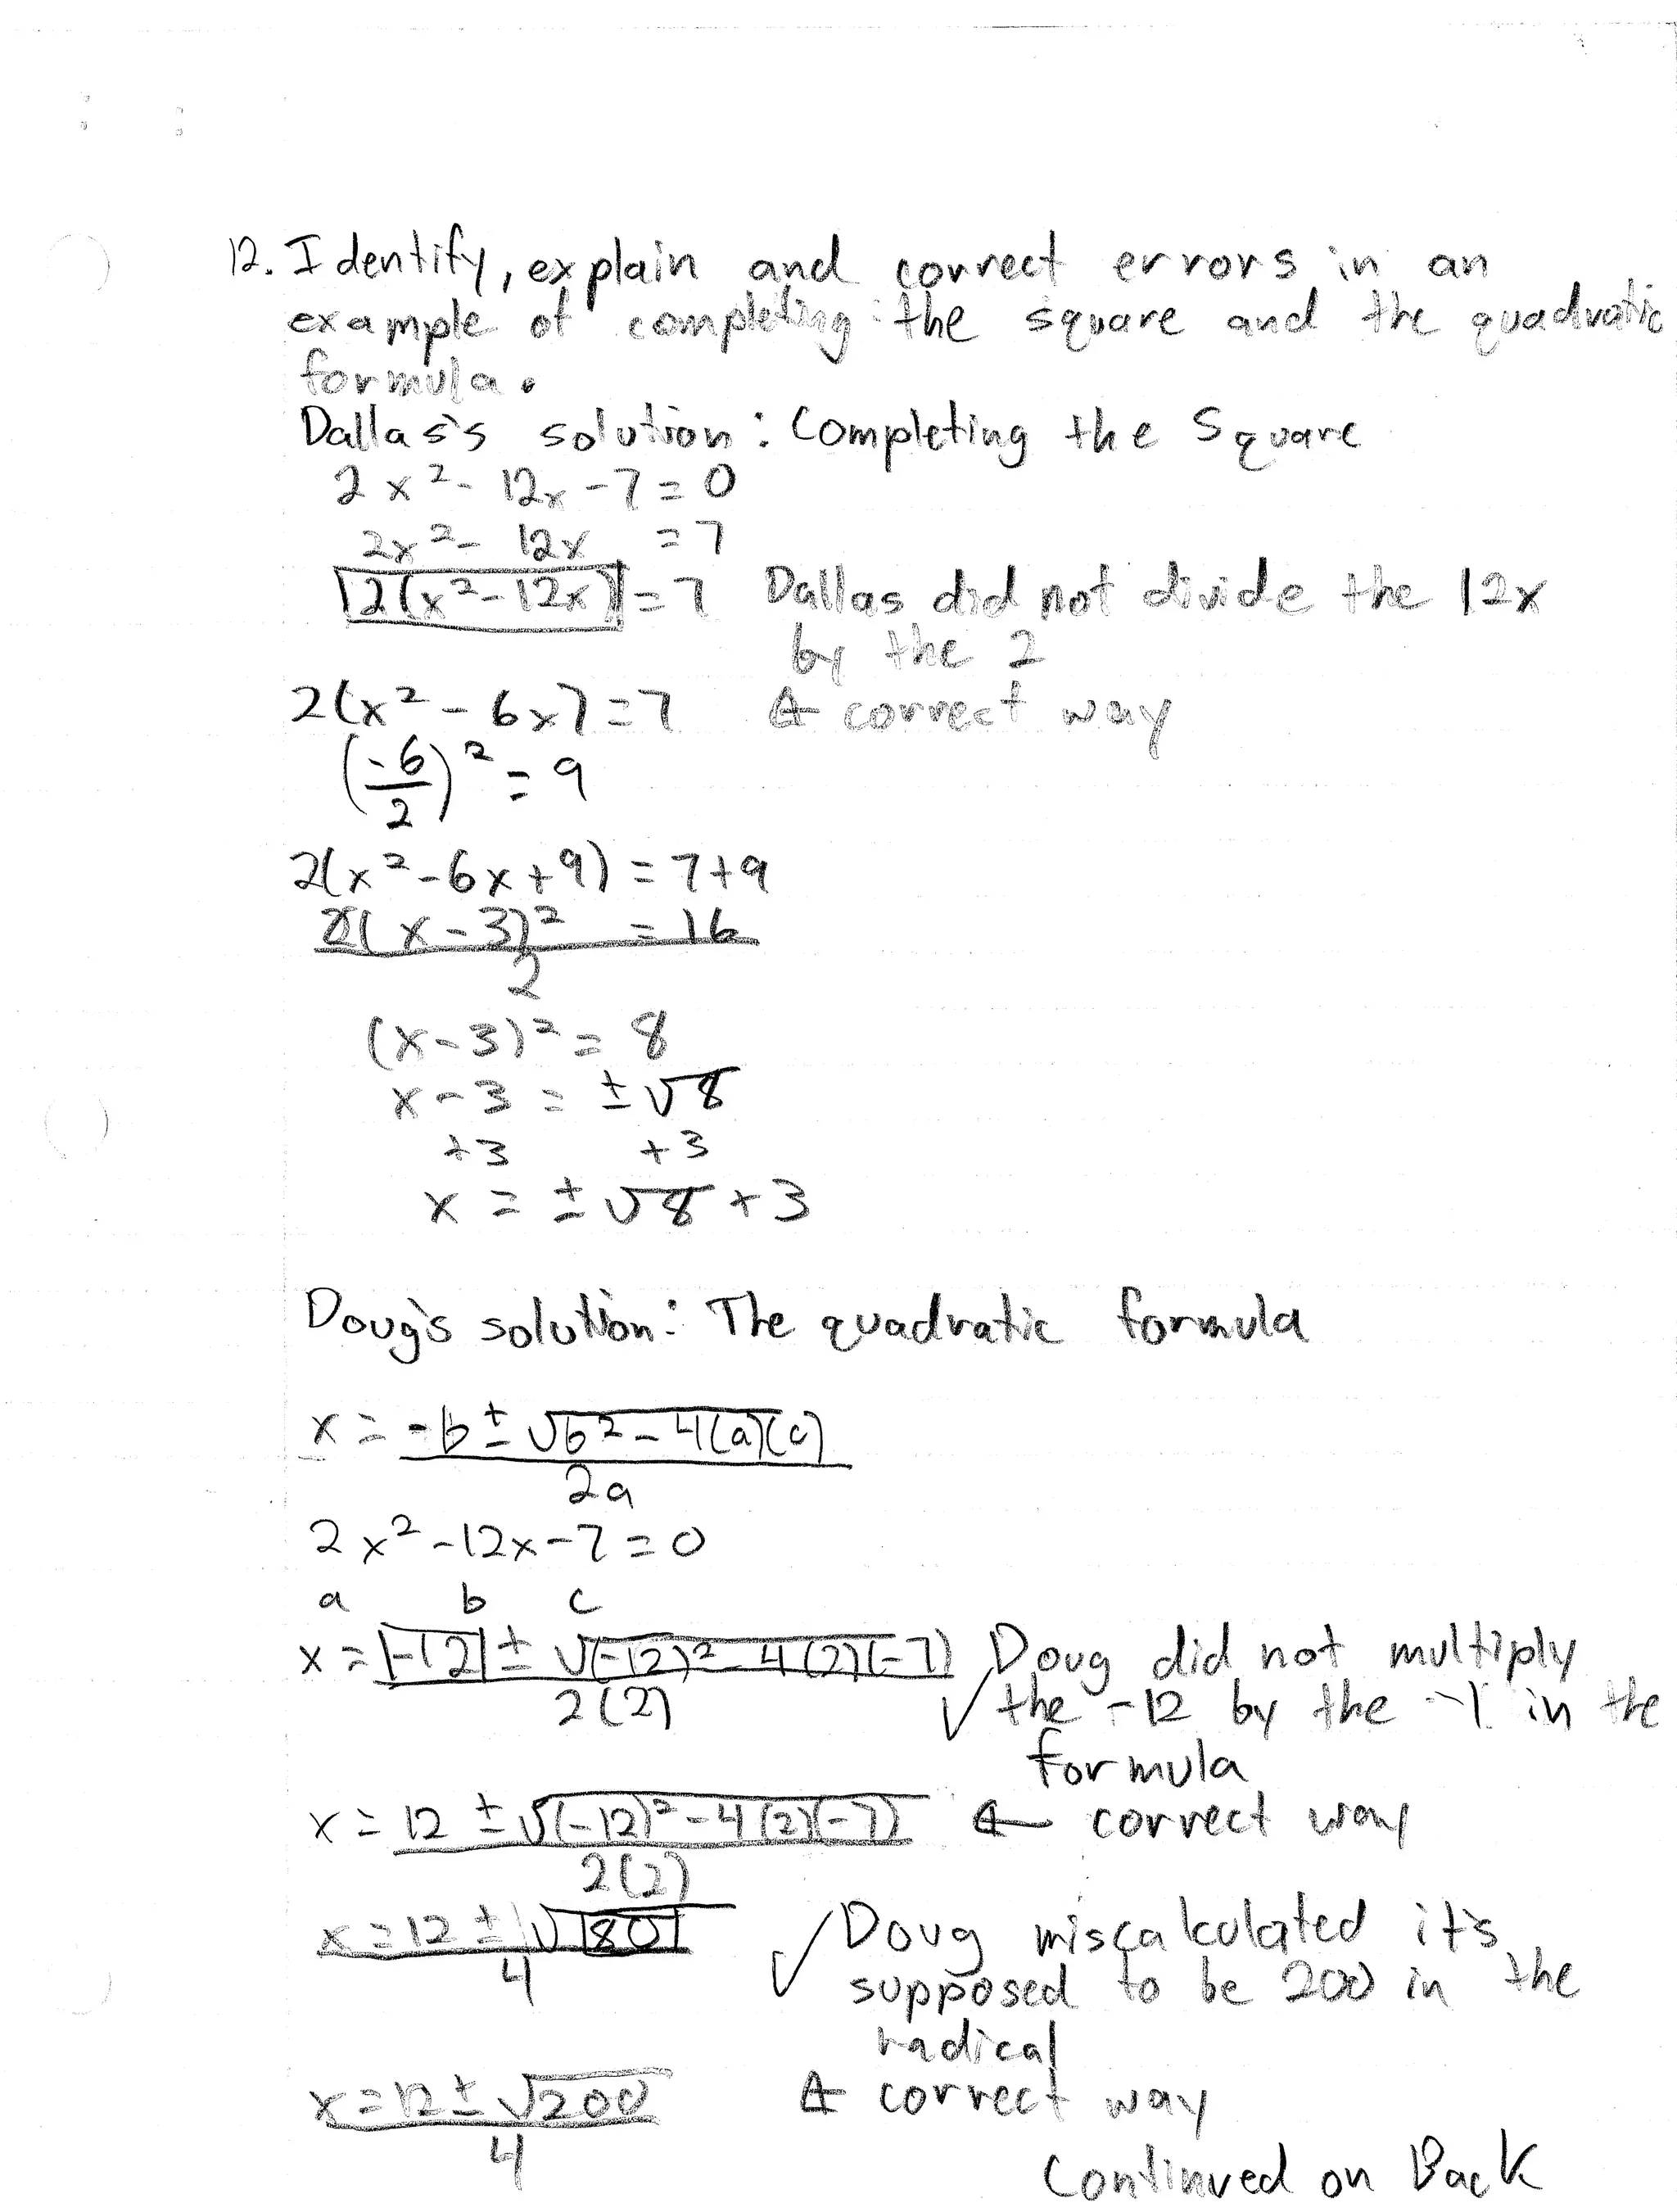 12. Identify, explain and correct errors in an
example of completing the square and the quadratic
formula.
Dallas's solution: Completing the Square
2x² - 12x - 7 = 0
2x² - 12x = 7
2(x² - 12x) = 7 Dallas did not divide the 12x
by the 2
2(x² - 6x) = 7 ← correct way
(-6/2)² = 9
2(x² - 6x + 9) = 7 + 9
2(x - 3)² = 16
2
(x - 3)² = 8
x - 3 = ±√8
+3 +3
x = ±√8 + 3
Doug's solution: The quadratic formula
x = -b ± √b² - 4(a)(c)
2a
2x² - 12x - 7 = 0
a b c
x = -12 ± √(-12)² - 4(2)(-7) Doug did not multiply
2(2) ✓ the -12 by the -1 in the
formula
x = 12 ± √(-12)² - 4(2)(-7) ← correct way
2(2)
x = 12 ± √180 Doug miscalculated it's
4 ✓ supposed to be 200 in the
radical
x = 12 ± √200 ← correct way
4
Continued on Back